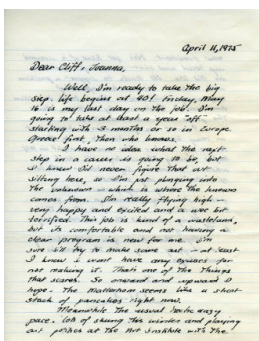 April 11, 1975
Dear Cliff & Joanna,
Well, I'm ready to take the big
step. Life begins at 40! Friday, May
16 is my last day on the job. I'm
going to take at least a year "off"
starting with 3 months or so in Europe.
Greece first, then who knows.
I have no idea what the next
step in a career is going to be, but
I knew I'd never figure that out
sitting here, so I'm just plunging into
the unknown - which is where the knowns
comes from. I'm really flying high -
very happy and excited and a wee bit
terrified. This job is kind of a wasteland,
but its comfortable and not having a
clear program is new for me. I'm
sure I'll try to make some art - at least
I know I wont have any excuses for
not making it. Thats one of the things
that scares. So onward and upward I
hope. The Matterhorn seems like a short
stack of pancakes right now.
Meanwhile the usual hectic
pace. Lots of skiing this winter and playing
at the Art Institute with the